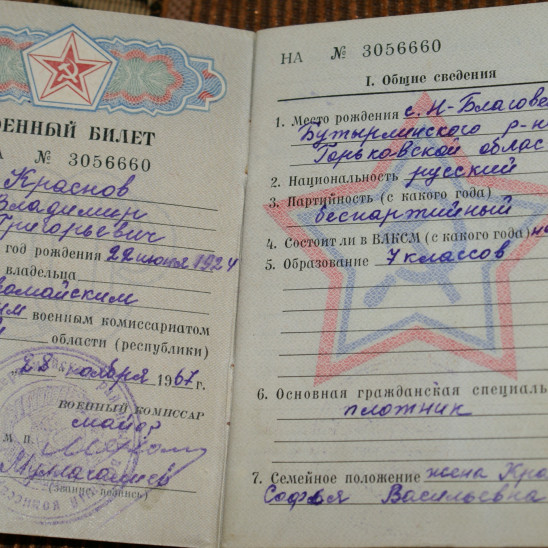 ОЕННЫЙ БИЛЕТ
А № 3056660
Краснов
Владимир
Григорьевич
год рождения 22 июня 1924
владельца
омайским
военным комиссариатом
области (республики)
28 ноября 1967 г.
ВОЕННЫЙ КОМИССАР
майор
М. П.
(Звание, подпись)
НА № 3056660
I. Общие сведения
1. Место рождения с. Н-Благове
Бутырлинского р-н
Горьковской облас
2. Национальность русский
3. Партийность (с какого года)
беспартийный
4. Состоит ли в ВЛКСМ (с какого года) н
5. Образование 7 классов
6. Основная гражданская специаль
плотник
7. Семейное положение жена Кра
Софья Васильевна